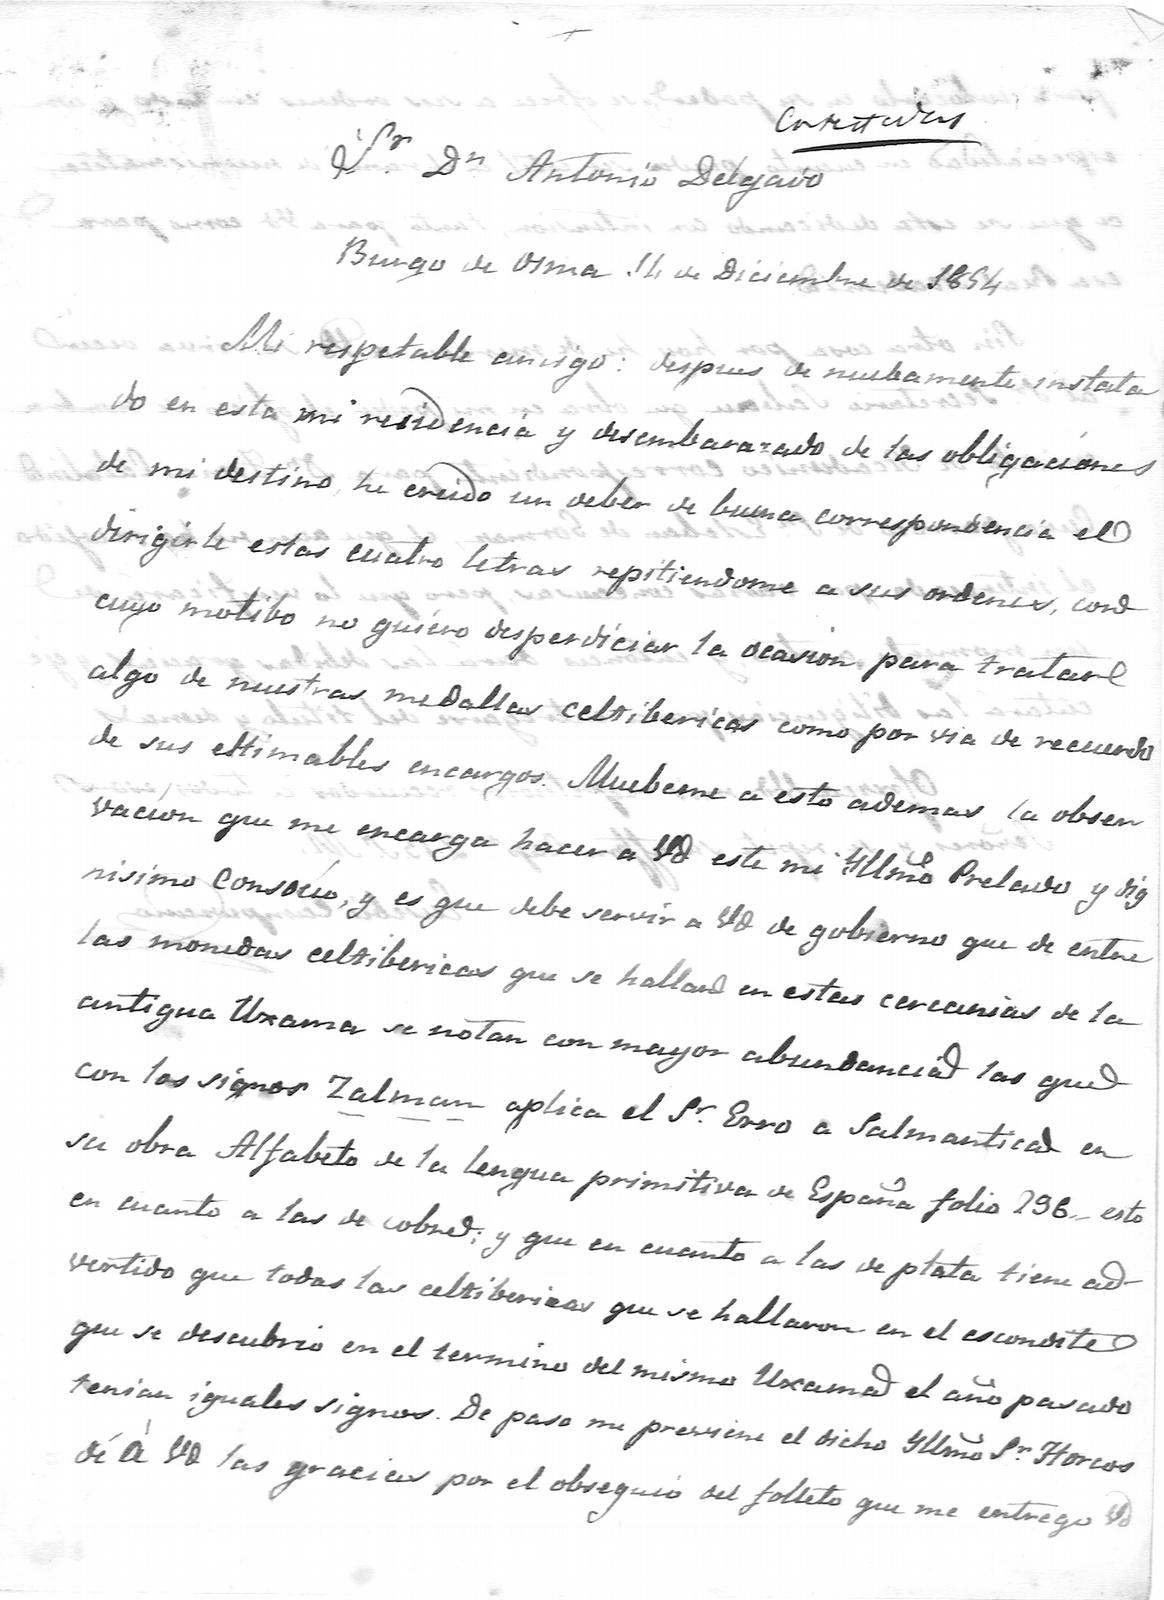 Contestada
Sr. Dn. Antonio Delgado
Burgo de Osma 14 de Diciembre de 1854
Mi respetable amigo: despues de nuebamente instala
do en esta mi residencia y desembarazado de las obligaciones
de mi destino, he creido un deber de buena correspondencia el
dirigirle estas cuatro letras repitiendome a sus ordenes, con
cuyo motibo no quiero desperdiciar la ocasion para tratar
algo de nuestras medallas celtibericas como por via de recuerdo
de sus estimables encargos. Muebeme a esto ademas la obser
vacion que me encarga hacer a Vd este mi Yllmo Prelado y dig
nisimo Consocio, y es que debe servir a Vd de gobierno que de entre
las monedas celtibericas que se hallan en estas cercanias de la
antigua Uxama se notan con mayor abundancia las que
con los signos Zalman aplica el Sr. Erro a Salmantica en
su obra Alfabeto de la lengua primitiva de España folio 296_ esto
en cuanto a las de cobre; y que en cuanto a las de plata tiene ad-
vertido que todas las celtibericas que se hallaron en el escondite
que se descubrio en el termino del mismo Uxama el año pasado
tenian iguales signos. De paso me previene el dicho Yllmo Sr. Horcos
dé á Vd las gracias por el obsequio del folleto que me entrego Vd